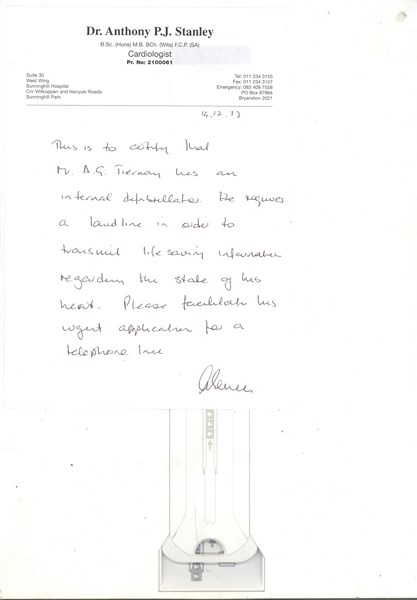 Dr. Anthony P.J. Stanley
B.Sc. (Hons) M.B. BCh. (Wits) F.C.P. (SA)
Cardiologist
Pr. No: 2100061
Suite 30
West Wing
Sunninghill Hospital
Cnr Witkoppen and Nanyuki Roads
Sunninghill Park
Tel: 011 234 3155
Fax: 011 234 3157
Emergency: 083 409 7558
PO Box 67884
Bryanston 2021
14.12.13
This is to certify that
Mr. A.G. Tiernay has an
internal defibrillator. He requires
a landline in order to
transmit life saving information
regarding the state of his
heart. Please facilitate his
urgent application for a
telephone line